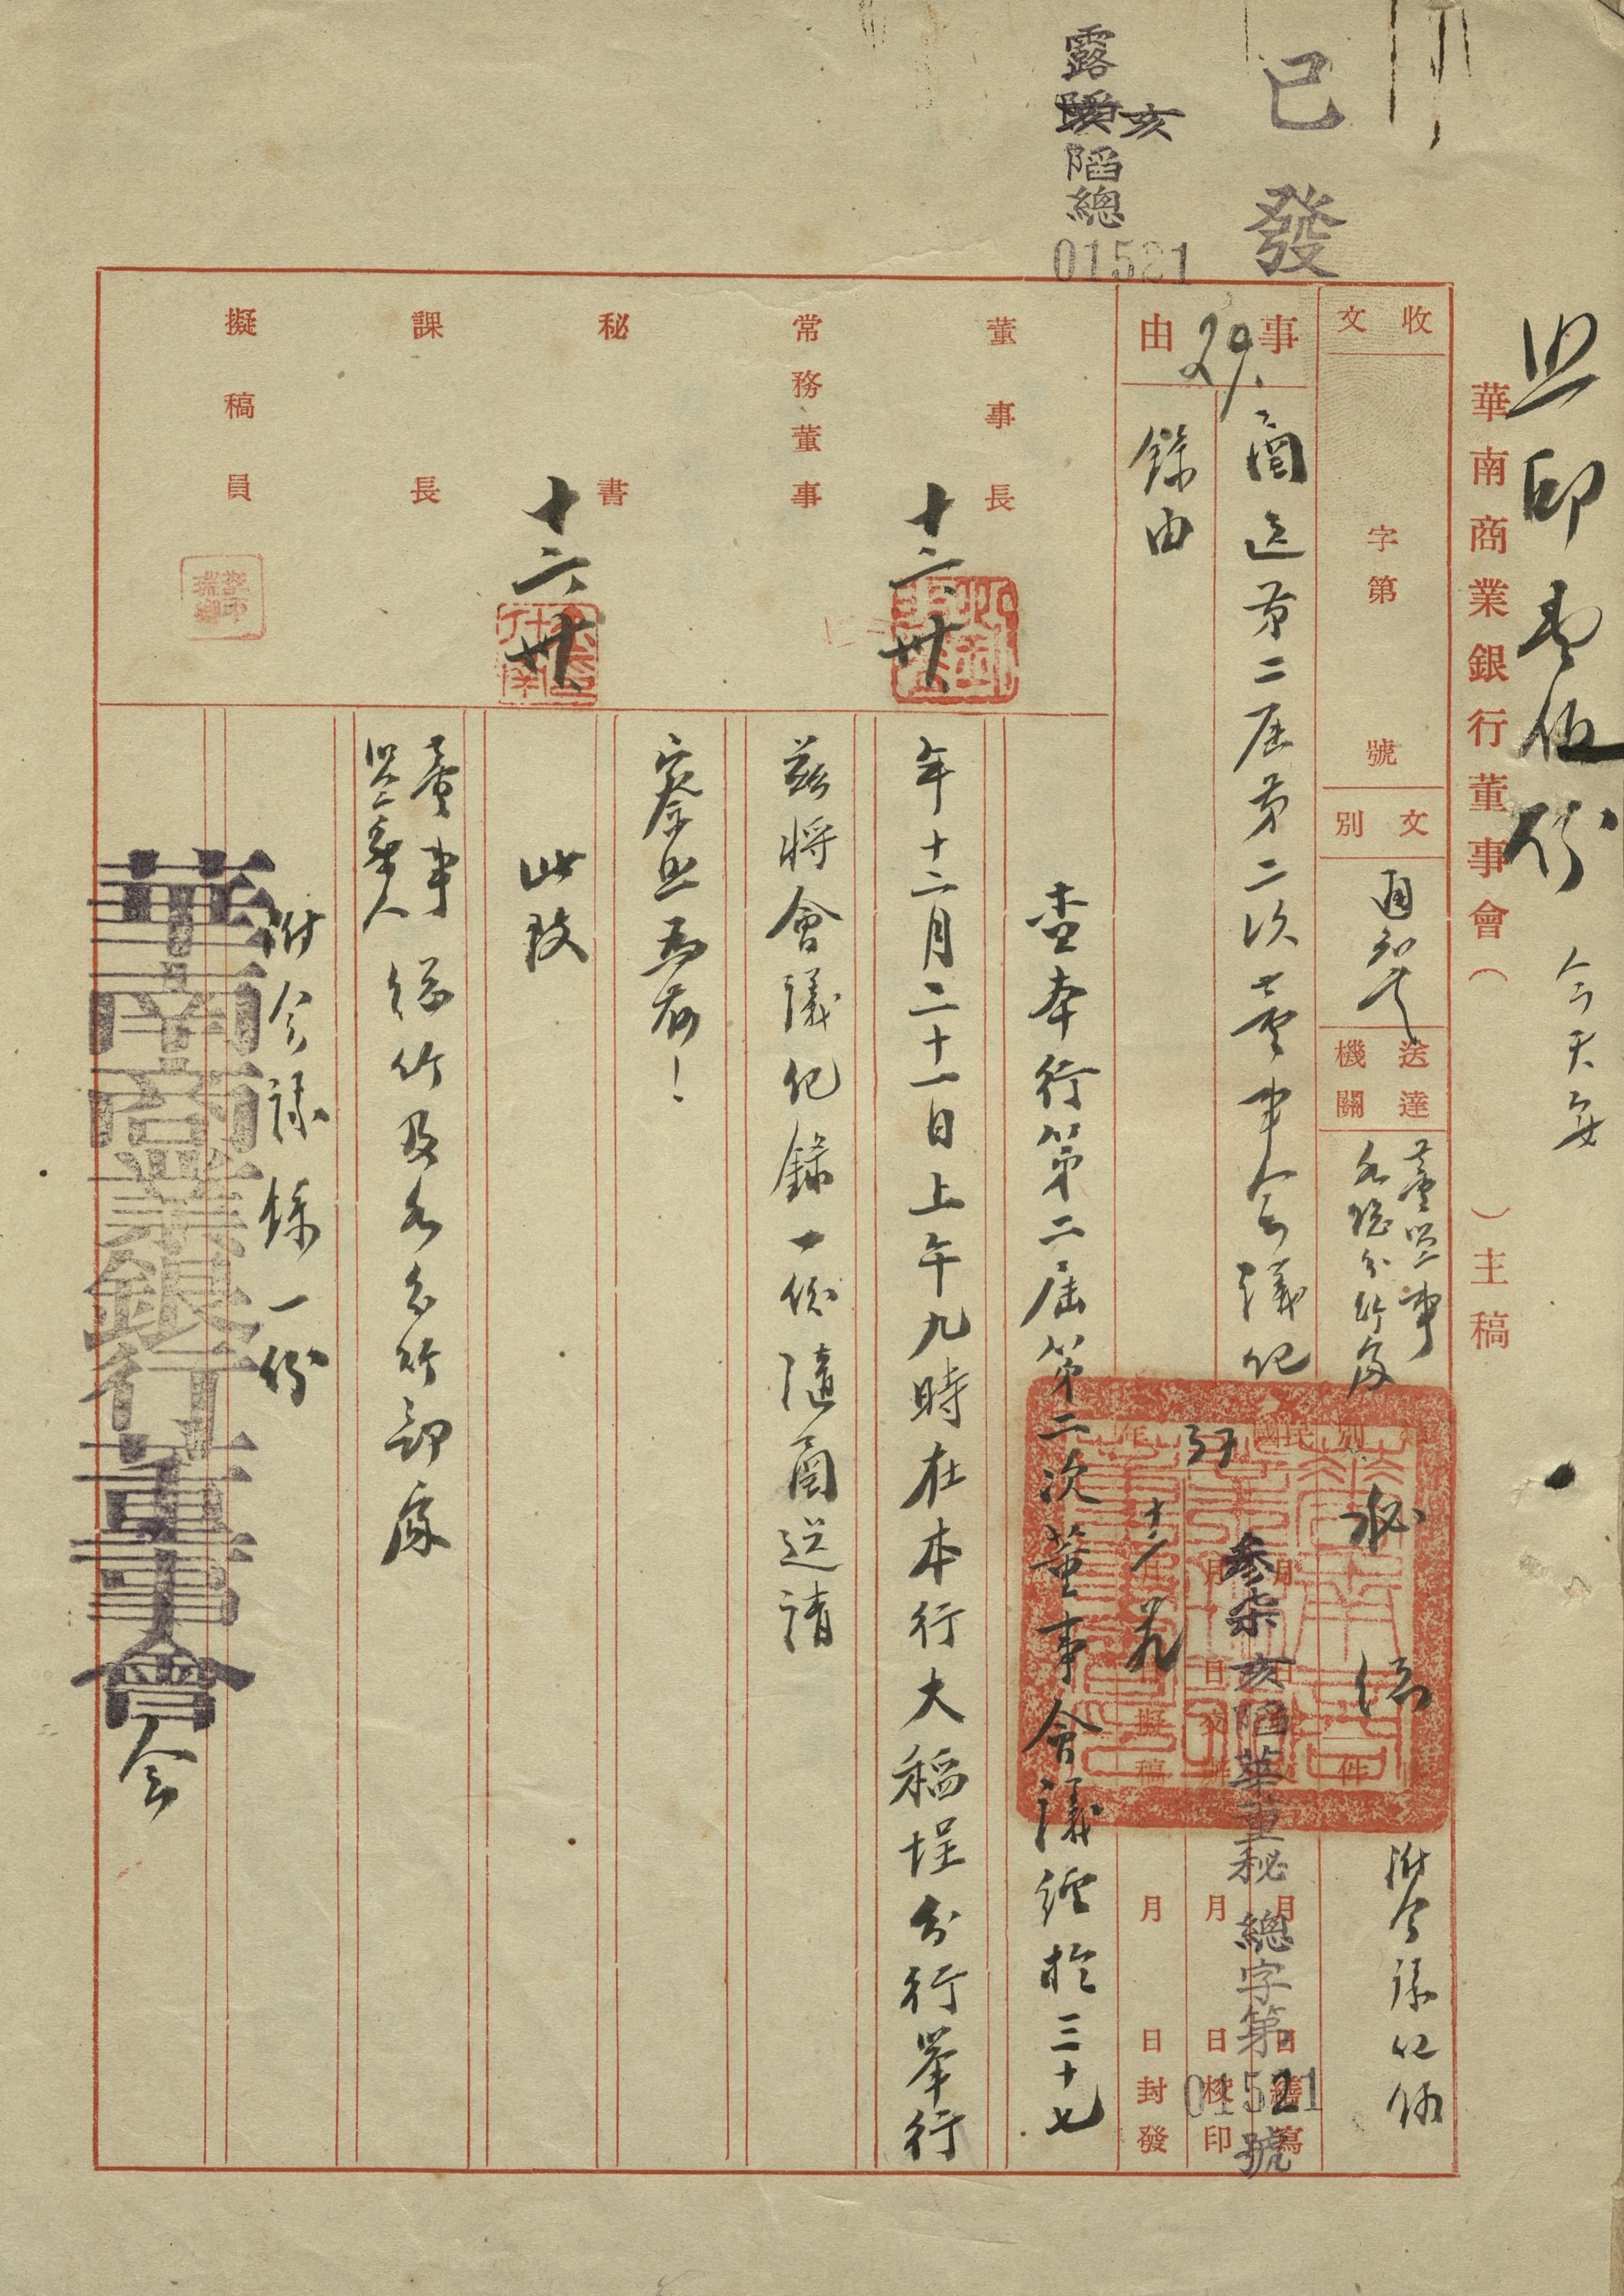 照印壹佰份
今天每
華南商業銀行董事會(　　)主稿
已發
露亥陷總
01521
收文　字第　號
文別　通知
送達機關　董監事　各總分行處
秘　總
附會議紀錄
事由
29.
函送第二屆第二次董事會議紀
錄由
37
十二　廿九
月　日擬稿
月　日交辦
月　日繕寫
月　日校印
月　日封發
參柒亥陷華董秘總字第01521號
董事長
十二卅
常務董事
秘書
十二卅
課長
擬稿員
查本行第二屆第二次董事會議經於三十七
年十二月二十一日上午九時在本行大稻埕分行舉行
茲將會議紀錄一份隨函送請
察照為荷！
此致
董事
監察人
總行及各分行部處
附會議錄一份
華南商業銀行董事會　会